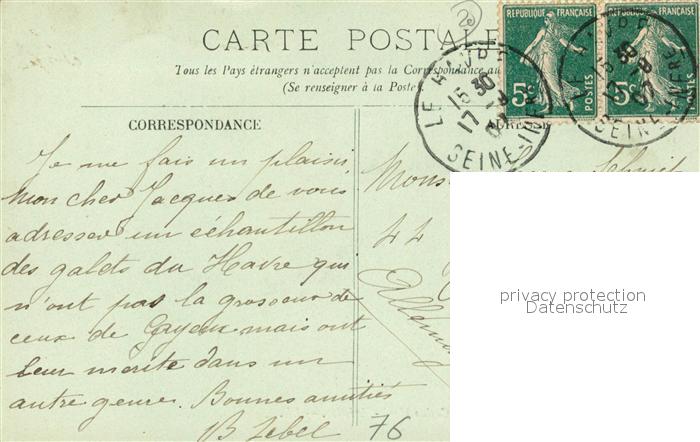 2
CARTE POSTALE
Tous les Pays étrangers n'acceptent pas la Correspondance au
(Se renseigner à la Poste)
RÉPUBLIQUE FRANÇAISE
5c
POSTES
RÉPUBLIQUE FRANÇAISE
5c
POSTES
LE HAVRE
15 30
17 - 8
07
SEINE-INFRE
LE HAVRE
15 30
17 - 8
07
SEINE-INFRE
CORRESPONDANCE
ADRESSE
Je me fais un plaisir
mon cher Jacques de vous
adresser un échantillon
des galets du Havre qui
n'ont pas la grosseur de
ceux de Cayeux mais ont
leur mérite dans un
autre genre. Bonnes amitiés
B Lebel
76
Mons
44
Allema
privacy protection
Datenschutz